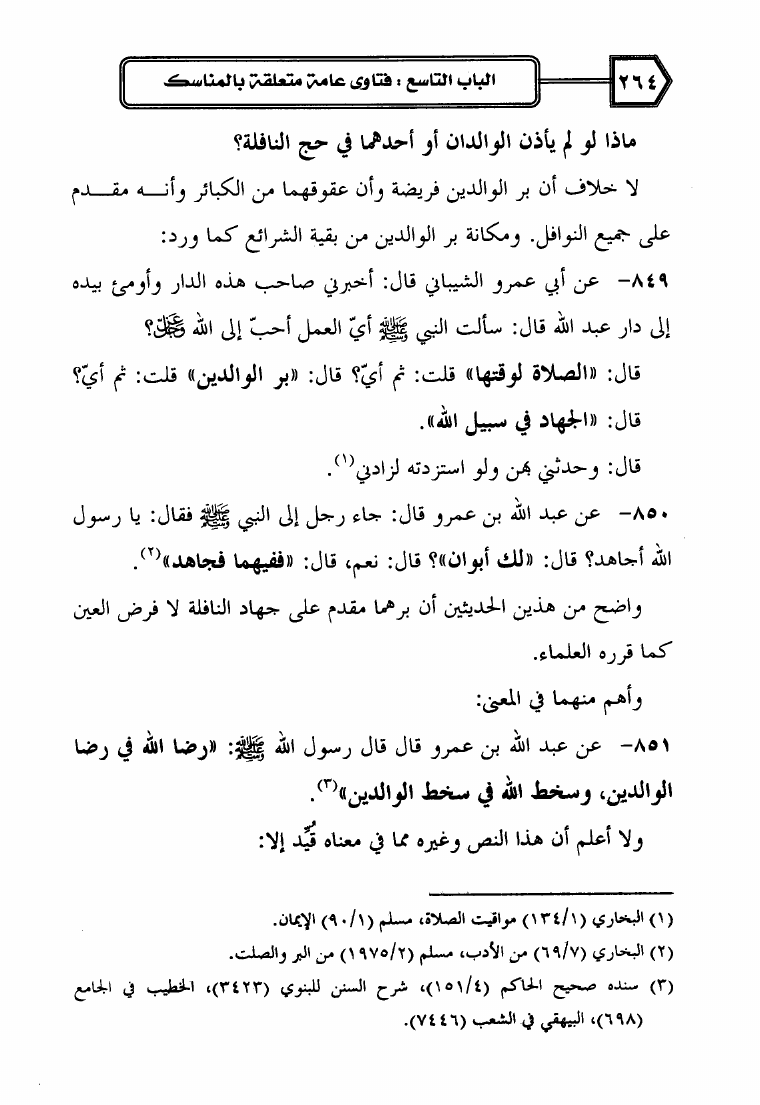 ٢٦٤
الباب التاسع : فتاوى عامة متعلقة بالمناسك
ماذا لو لم يأذن الوالدان أو أحدهما في حج النافلة؟
لا خلاف أن بر الوالدين فريضة وأن عقوقهما من الكبائر وأنـــه مقـــدم
على جميع النوافل. ومكانة بر الوالدين من بقية الشرائع كما ورد:
٨٤٩- عن أبي عمرو الشيباني قال: أخبرني صاحب هذه الدار وأومئ بيده
إلى دار عبد الله قال: سألت النبي ﷺ أيّ العمل أحبّ إلى الله عز وجل؟
قال: «الصلاة لوقتها» قلت: ثم أيّ؟ قال: «بر الوالدين» قلت: ثم أيّ؟
قال: «الجهاد في سبيل الله».
قال: وحدثني بهن ولو استزدته لزادني(١).
٨٥٠- عن عبد الله بن عمرو قال: جاء رجل إلى النبي ﷺ فقال: يا رسول
الله أجاهد؟ قال: «لك أبوان»؟ قال: نعم، قال: «ففيهما فجاهد»(٢).
واضح من هذين الحديثين أن برهما مقدم على جهاد النافلة لا فرض العين
كما قرره العلماء.
وأهم منهما في المعنى:
٨٥١- عن عبد الله بن عمرو قال قال رسول الله ﷺ: «رضا الله في رضا
الوالدين، وسخط الله في سخط الوالدين»(٣).
ولا أعلم أن هذا النص وغيره مما في معناه قُيِّد إلا:
(١) البخاري (١٣٤/١) مواقيت الصلاة، مسلم (٩٠/١) الإيمان.
(٢) البخاري (٦٩/٧) من الأدب، مسلم (١٩٧٥/٢) من البر والصلت.
(٣) سنده صحيح الحاكم (١٥١/٤)، شرح السنن للبنوي (٣٤٢٣)، الخطيب في الجامع
(٦٩٨)، البيهقي في الشعب (٧٤٤٦).